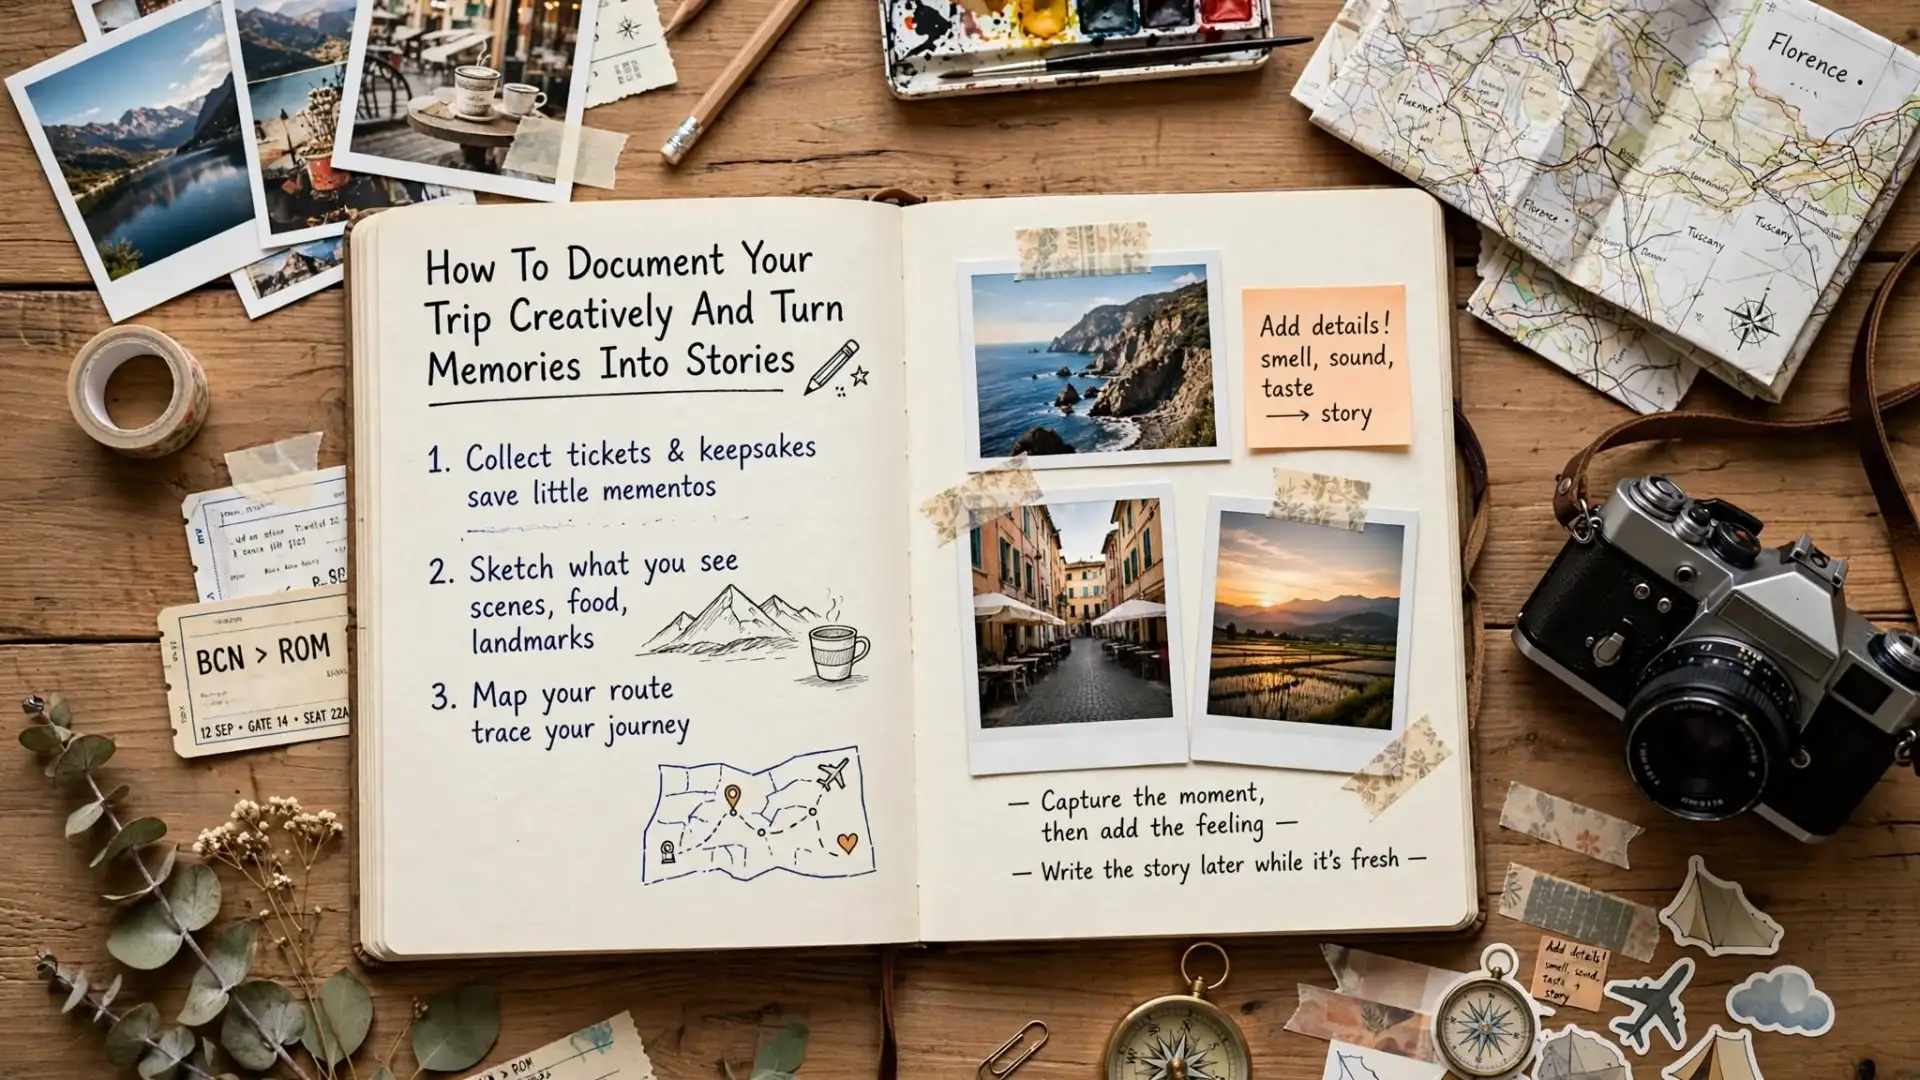 How To Document Your
Trip Creatively And Turn
Memories Into Stories
1. Collect tickets & keepsakes
save little mementos
2. Sketch what you see
scenes, food,
landmarks
3. Map your route
trace your journey
Add details!
smell, sound,
taste
→ story
— Capture the moment,
then add the feeling —
— Write the story later while it's fresh —
BCN > ROM
12 SEP • GATE 14 • SEAT 22A
Florence
Florence
Tuscany
Tuscany
Add details!
smell, sound,
taste →
story
> ROM